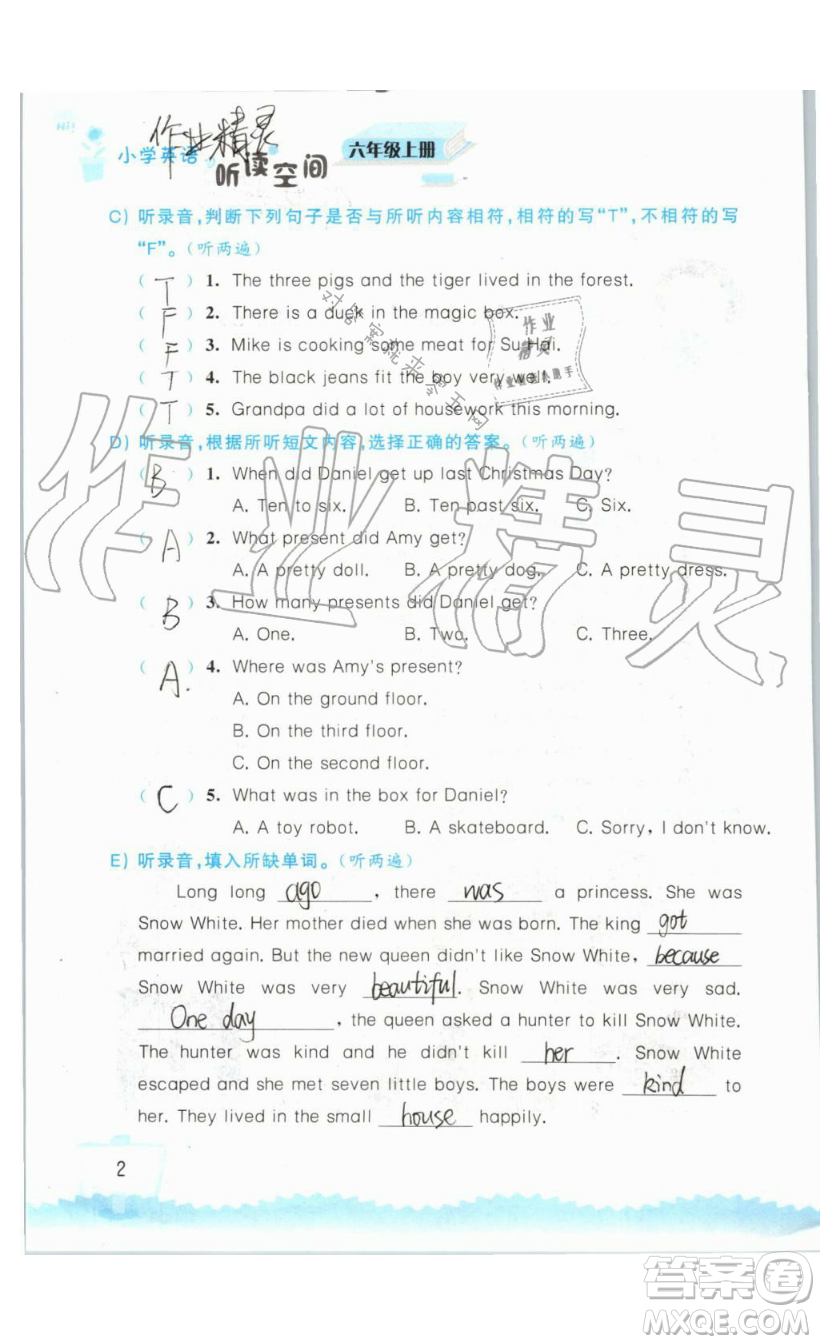 Hi!
作业精灵
小学英语
听读空间
六年级上册
C) 听录音,判断下列句子是否与所听内容相符,相符的写“T”,不相符的写
“F”。(听两遍)
( T ) 1. The three pigs and the tiger lived in the forest.
( F ) 2. There is a duck in the magic box.
( F ) 3. Mike is cooking some meat for Su Hai.
( T ) 4. The black jeans fit the boy very well.
( T ) 5. Grandpa did a lot of housework this morning.
D) 听录音,根据所听短文内容,选择正确的答案。(听两遍)
( B ) 1. When did Daniel get up last Christmas Day?
A. Ten to six. B. Ten past six. C. Six.
( A ) 2. What present did Amy get?
A. A pretty doll. B. A pretty dog. C. A pretty dress.
( B ) 3. How many presents did Daniel get?
A. One. B. Two. C. Three.
( A. ) 4. Where was Amy's present?
A. On the ground floor.
B. On the third floor.
C. On the second floor.
( C ) 5. What was in the box for Daniel?
A. A toy robot. B. A skateboard. C. Sorry, I don't know.
E) 听录音,填入所缺单词。(听两遍)
Long long ago , there was a princess. She was
Snow White. Her mother died when she was born. The king got
married again. But the new queen didn't like Snow White, because
Snow White was very beautiful. Snow White was very sad.
One day , the queen asked a hunter to kill Snow White.
The hunter was kind and he didn't kill her . Snow White
escaped and she met seven little boys. The boys were kind to
her. They lived in the small house happily.
2
作业精灵
作业
精灵
答案卷
MXQE.COM